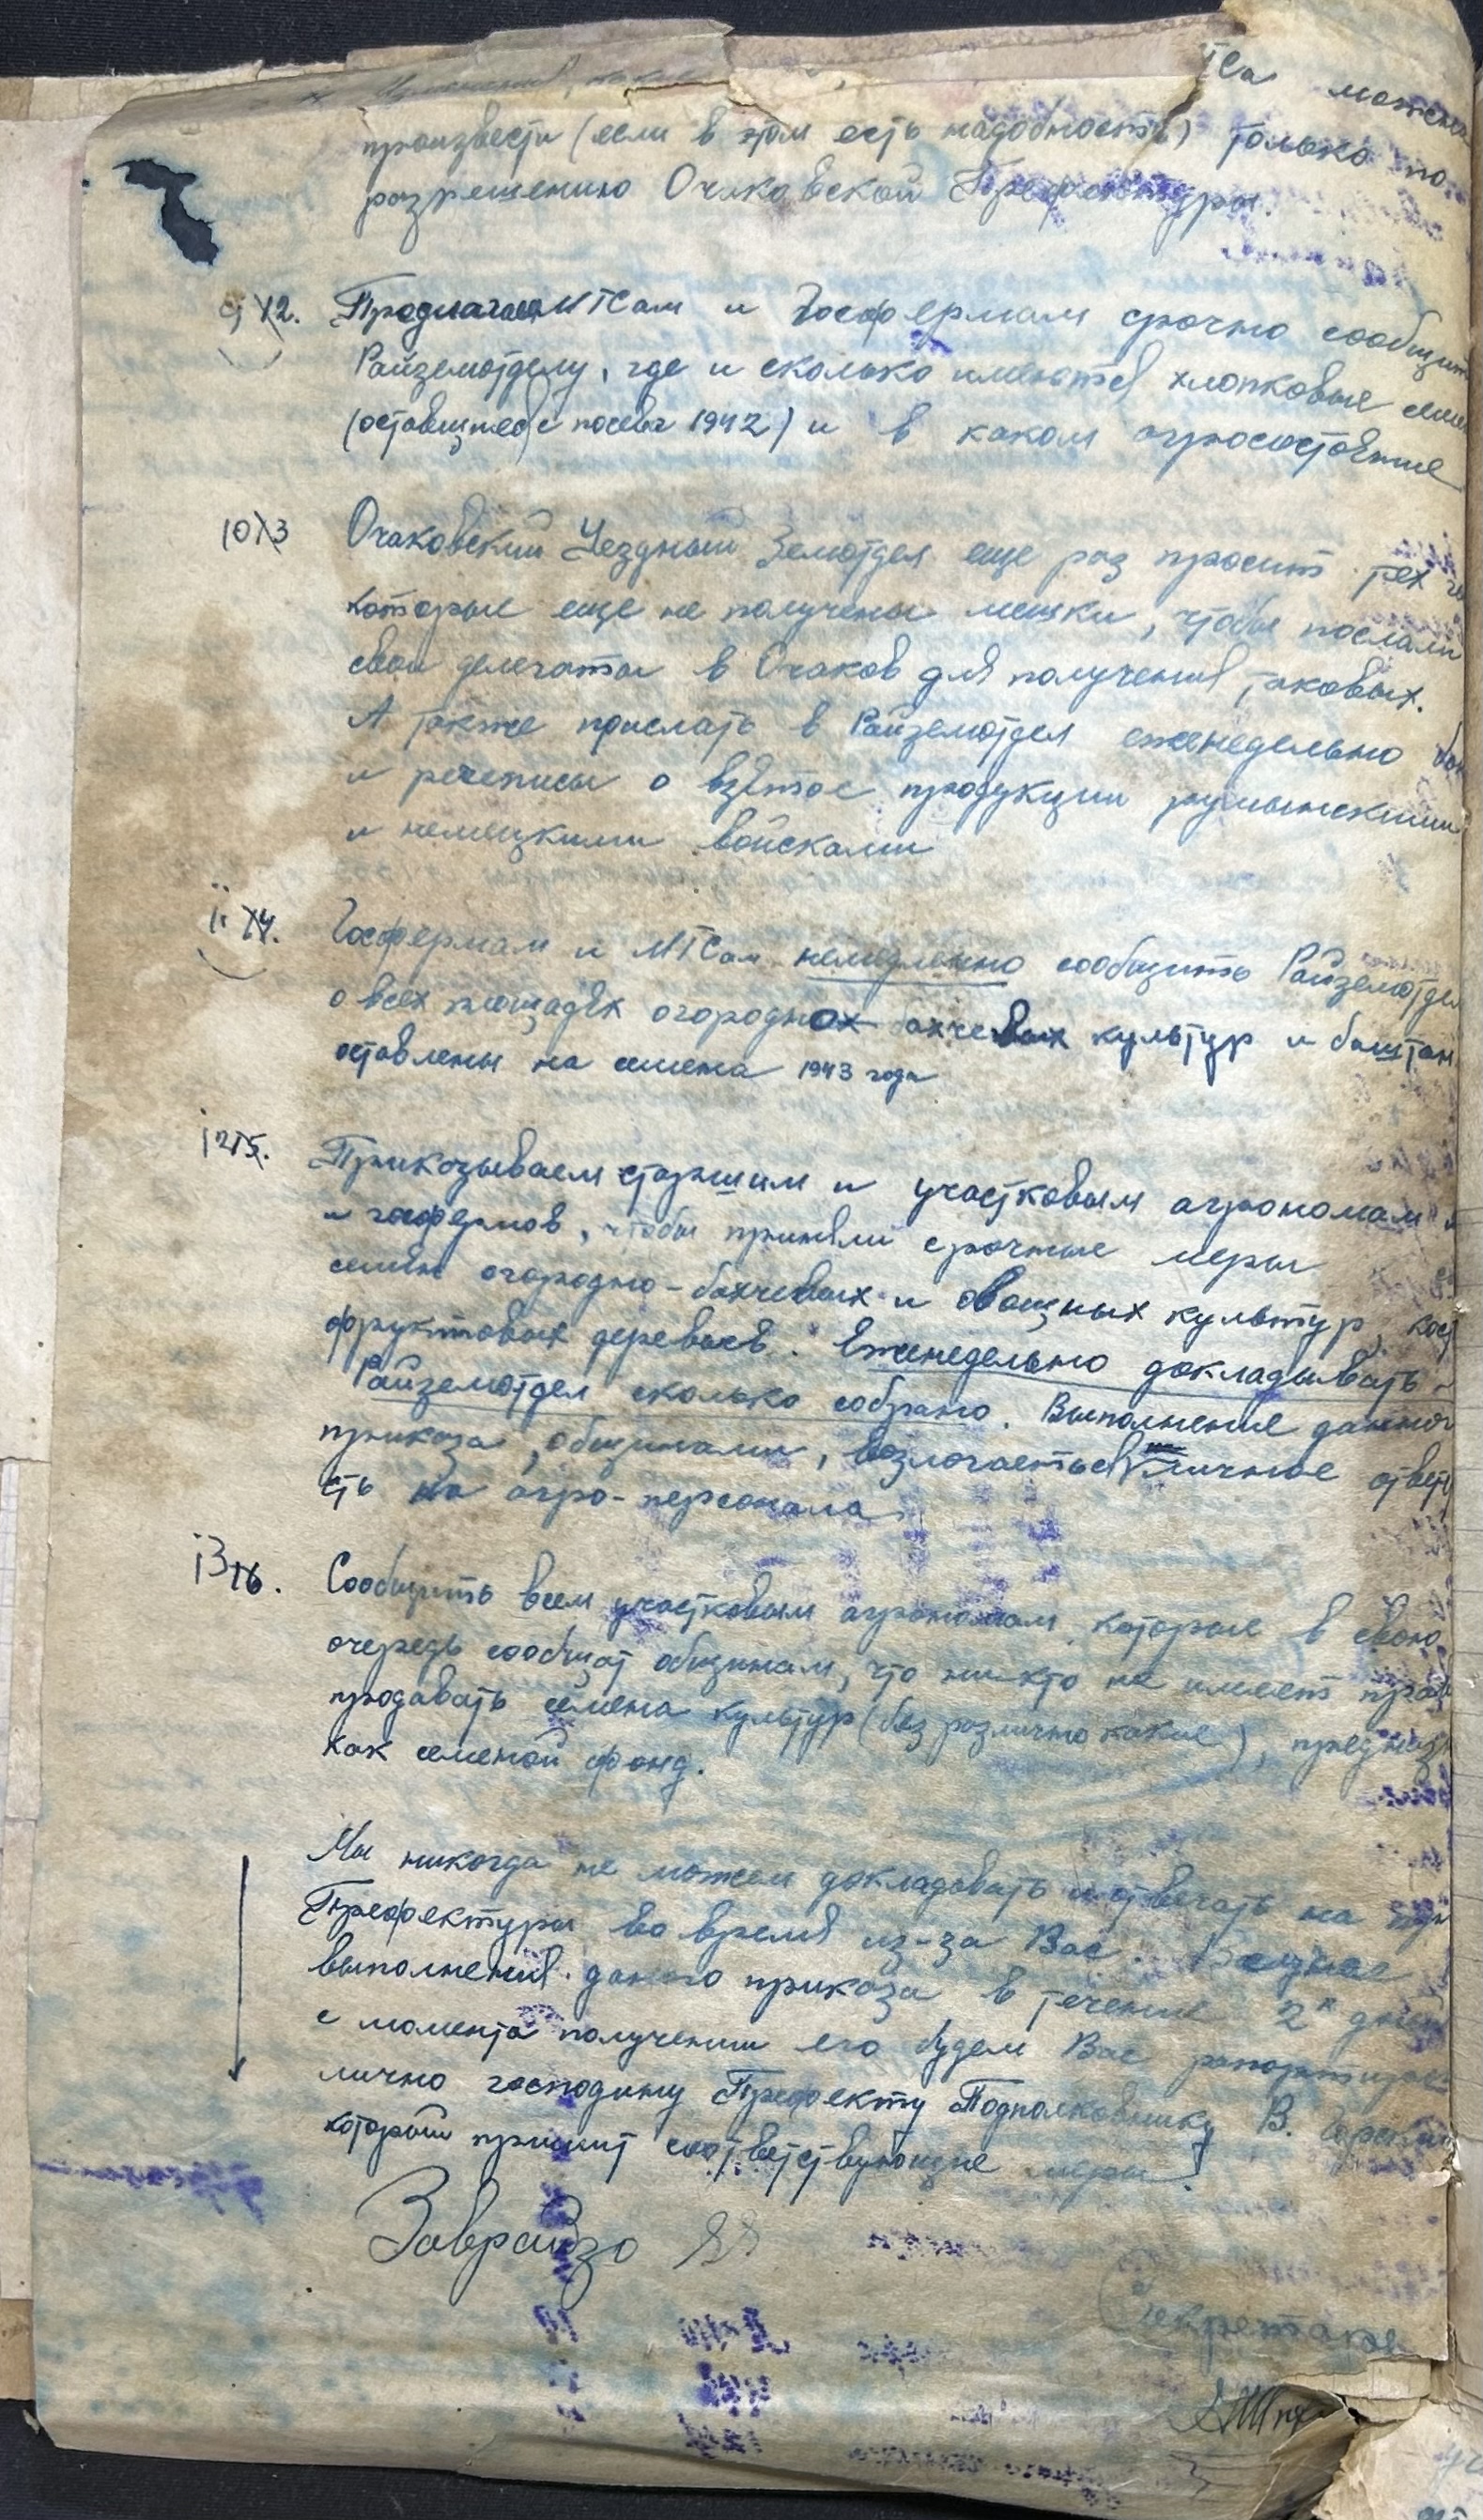 ТСа можем
произвести (если в этом есть надобность) только по
разрешению Очаковской Префектуры.
9) 12. Предлагаем МТСам и Госфермам срочно сообщить
Райземотделу, где и сколько имеются хлопковые семен
(оставшиеся с посева 1942) и в каком агросостояние
10) 13 Очаковский Уездный Земотдел еще раз просит тех
которые еще не получены мешки, чтобы послали
свои делегаты в Очаков для получения таковых.
А также прислать в Райземотдел еженедельно
и речеписы о взятое продукции румынскими
и немецкими войсками
11 14. Госфермам и МТСам немедленно сообщить Райземотдел
о всех площадях огороднох бахчевых культур и баштан
оставлены на семена 1943 года
12 15. Приказываем старшим и участковым агрономам
и госфермов, чтобы приняли срочные меры
семян огородно-бахчевых и овощных культур, кос
фруктовых деревьев. Еженедельно докладывать
Райземотдел сколько собрано. Выполнение данног
приказа, общинами, возлогаеться личное ответ
сть на агро-персонала.
13 16. Сообщить всем участковым агрономам, которые в свою
очередь сообщат общинам, что никто не имеет прав
продавать семена культур (без различно какие), предназ
как семеной фонд.
Мы никогда не можем докладовать и отвечать на
Префектуры во время из-за Вас.
выполнения даного приказа в течение 2х дней
с момента получении его будем Вас рапортиров
лично господину Префекту Подполковнику В.
который примит соответствующие меры!
Заврайзо
Секретарь